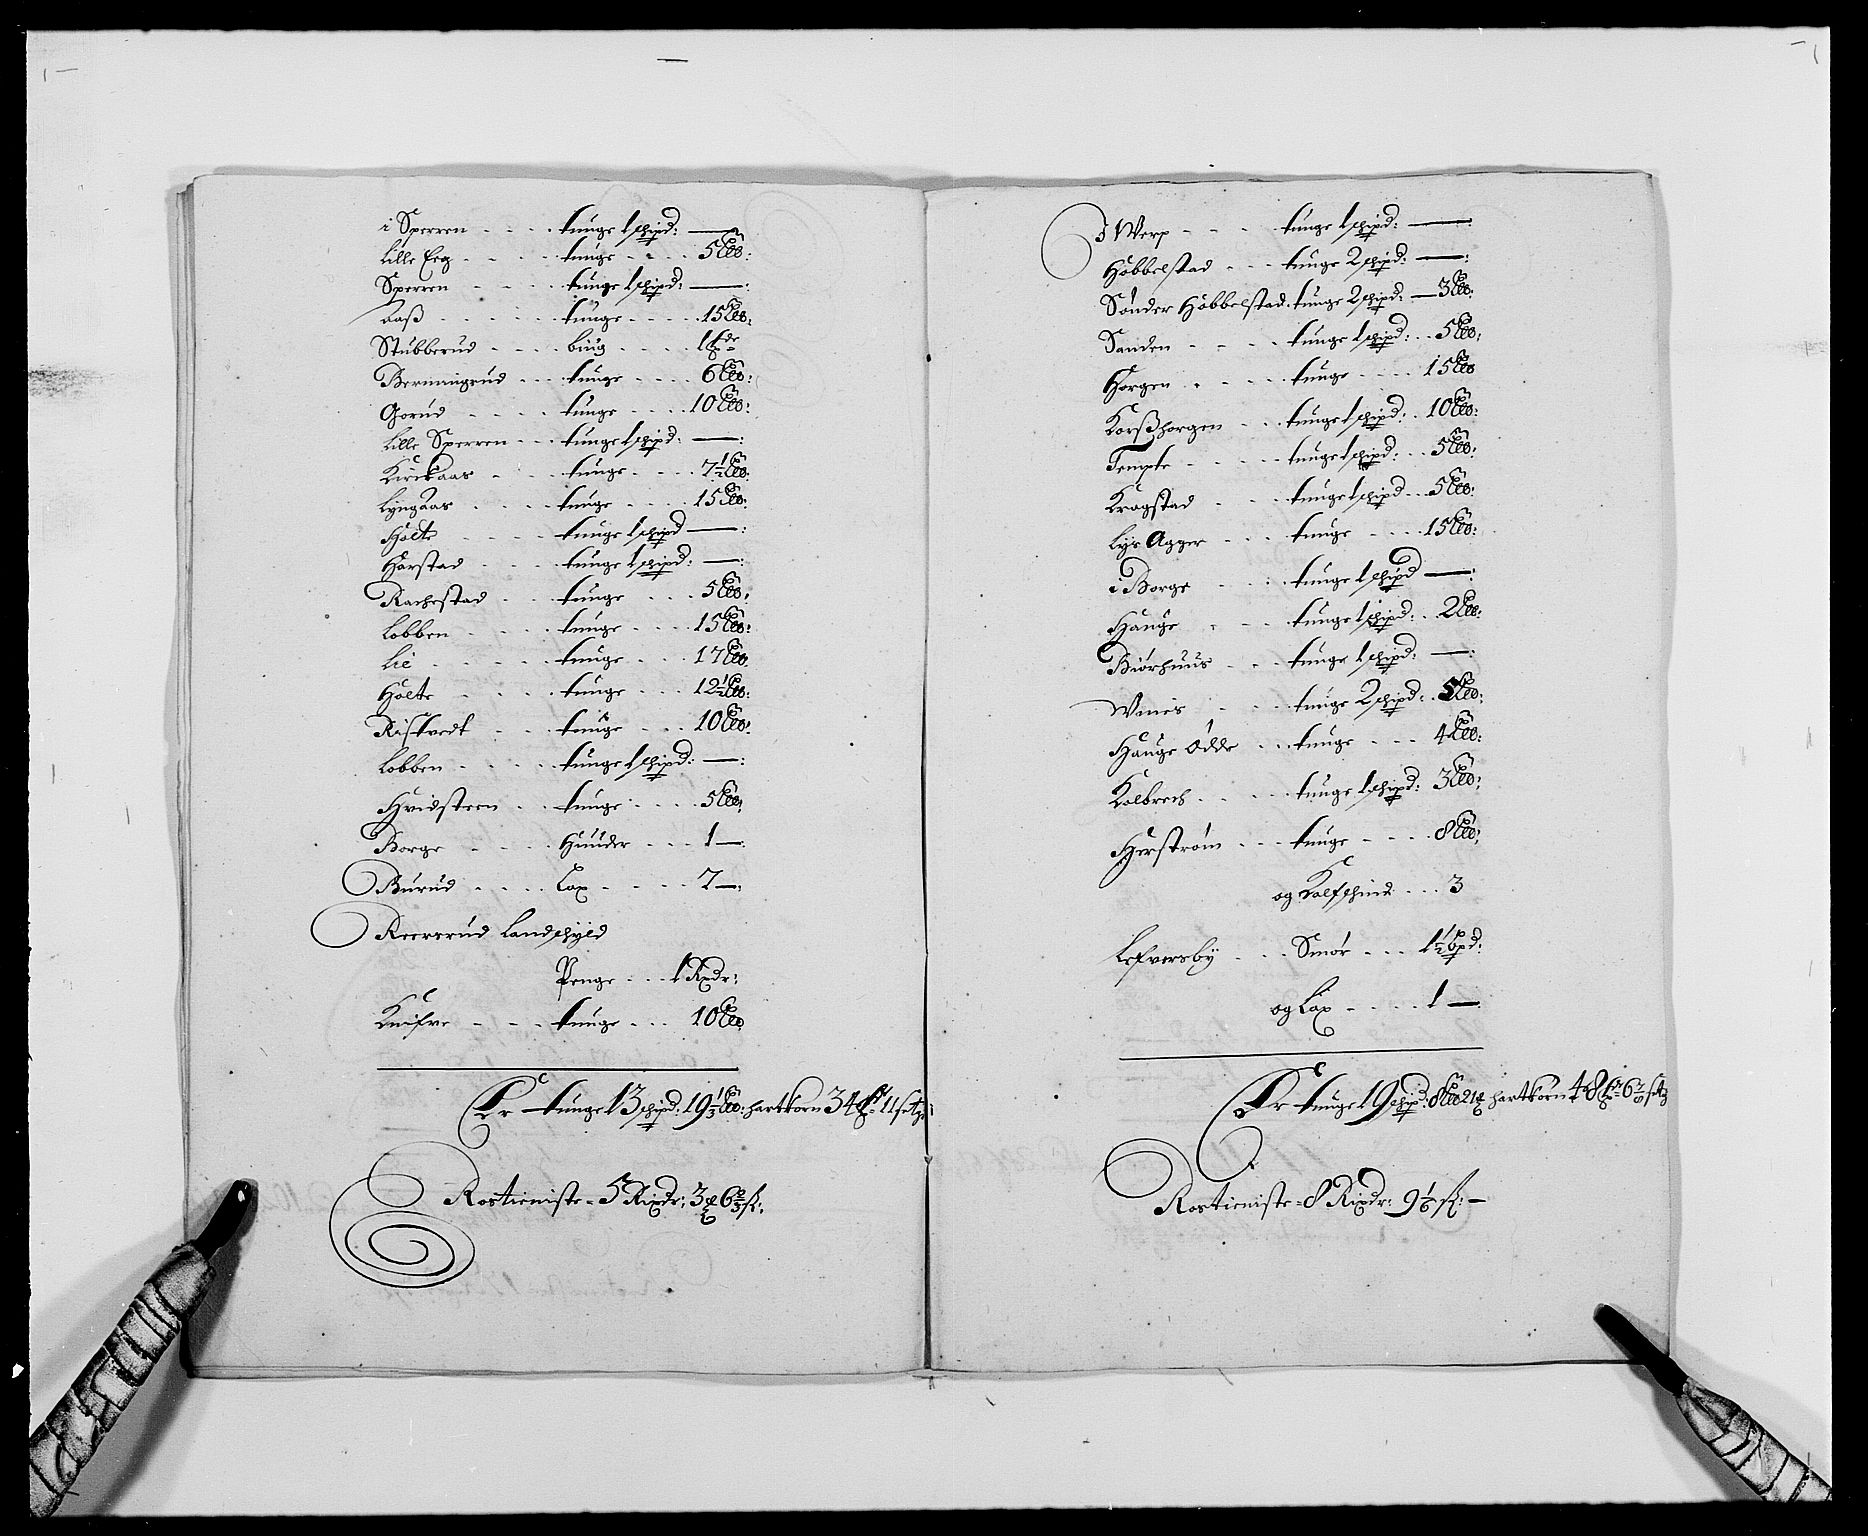 i Sperren - - - - tunge 1 schpd: —
Lille Eeg - - - - tunge - - - 5 Lb:
Sperren - - - - tunge 1 schpd: —:
Aaß - - - - - tunge - - - - 15 Lb:
Stubberud - - - - biug - - - - 1
Bermingrud - - - tunge - - - - 6 Lb:
Gorud - - - - tunge - - - - 10 Lb:
Lille Sperren - - - tunge 1 schpd: —:
Kirckaas - - - tunge - - - - 7½ Lb:
Lyngaas - - - - tunge - - - - 15 Lb:
Holte - - - - tunge 1 schpd —:
Harstad - - - - tunge 1 schpd: —:
Rachestad - - - tunge - - - 5 Lb:
Lobben - - - - tunge - - - - 15 Lb:
Lie - - - - - tunge - - - 17 Lb:
Holte - - - - tunge - - - 12½ Lb:
Riskvedt - - - tunge - - - 10 Lb:
Lobben - - - - tunge 1 schpd: —:
Hvidsteen - - - tunge - - - - 5 Lb:
Borge - - - - Huuder - - - 1 —
Burud - - - - Lax - - - - 7 —:
Reersrud Landschyld
Penge - - - 1 Rxdr:
Knifve - - - tunge - - - 10 Lb
Er tunge 13 schpd: 19⅓ Lb: hartkorn 34 11 setg:
Rostieniste = 5 Rixdr: 3 6⅔ sk:
I Werp - - - - tunge 1 schpd: —:
Hobbelstad - - - tunge 2 schpd: —:
Sønder Hobbelstad tunge 2 schpd: — 3 Lb:
Sanden - - - - tunge 1 schpd: - - 5 Lb:
Horgen - - - - tunge - - - - 15 Lb
Korßhorgen - - - tunge 1 schpd: - 10 Lb:
Tempte - - - - tunge 1 schpd: - - 5 Lb:
Kragstad - - - tunge 1 schpd - - 5 Lb:
Lys Agger - - - tunge - - - - 15 Lb:
i Borge - - - - tunge 1 schpd —:
Hauge - - - - tunge 1 schpd: - - 2 Lb:
Biørhuus - - - tunge 1 schpd: —:
Wines - - - - tunge 2 schpd: - 5 Lb:
Hauge Odde - - - tunge - - - 4 Lb:
Kolbrech - - - - tunge 1 schpd: 3 Lb:
Herstrøm - - - tunge - - - - 8 Lb:
og Kalfschind - - - 3
Lefversby - - - Smør - - - 1½ bpd:
og Lax - - - - 1 —
Er tunge 19 schpd: 8 Lb 21 hartkorn 48 6 setg
Rostieniste = 8 Rixdr: 9⅙ sk: —